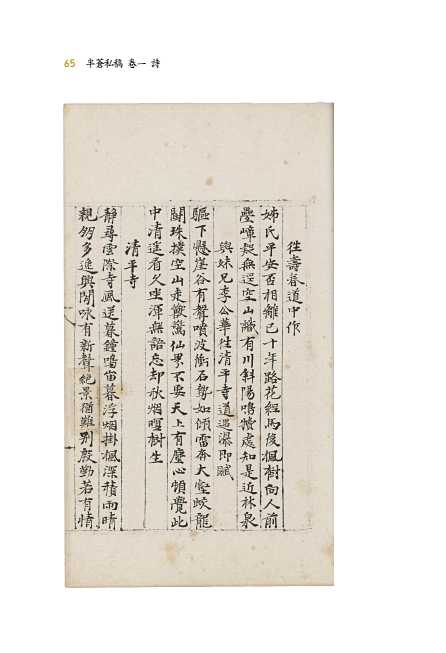 65 半蒼私稿 卷一 詩
往壽春道中作
姊氏平安否相離已十年路花經馬後楓樹向人前
疊嶂疑無逕空山識有川斜陽鳴犢處知是近林泉
與妹兄李公華往清平寺道遇瀑即賦
驅下懸崖谷有聲噴波衝石勢如傾雷奔大壑蛟龍
鬪珠撲空山走獸驚仙界不 天上有塵心頓覺此
中清 看久坐渾無語忘却秋烟暝樹生
清平寺
靜尋雲際寺風送暮鐘鳴 暮浮烟掛楓深積雨晴
親朋多逸興閒咏有新聲絶景猶難別慇勤若有情